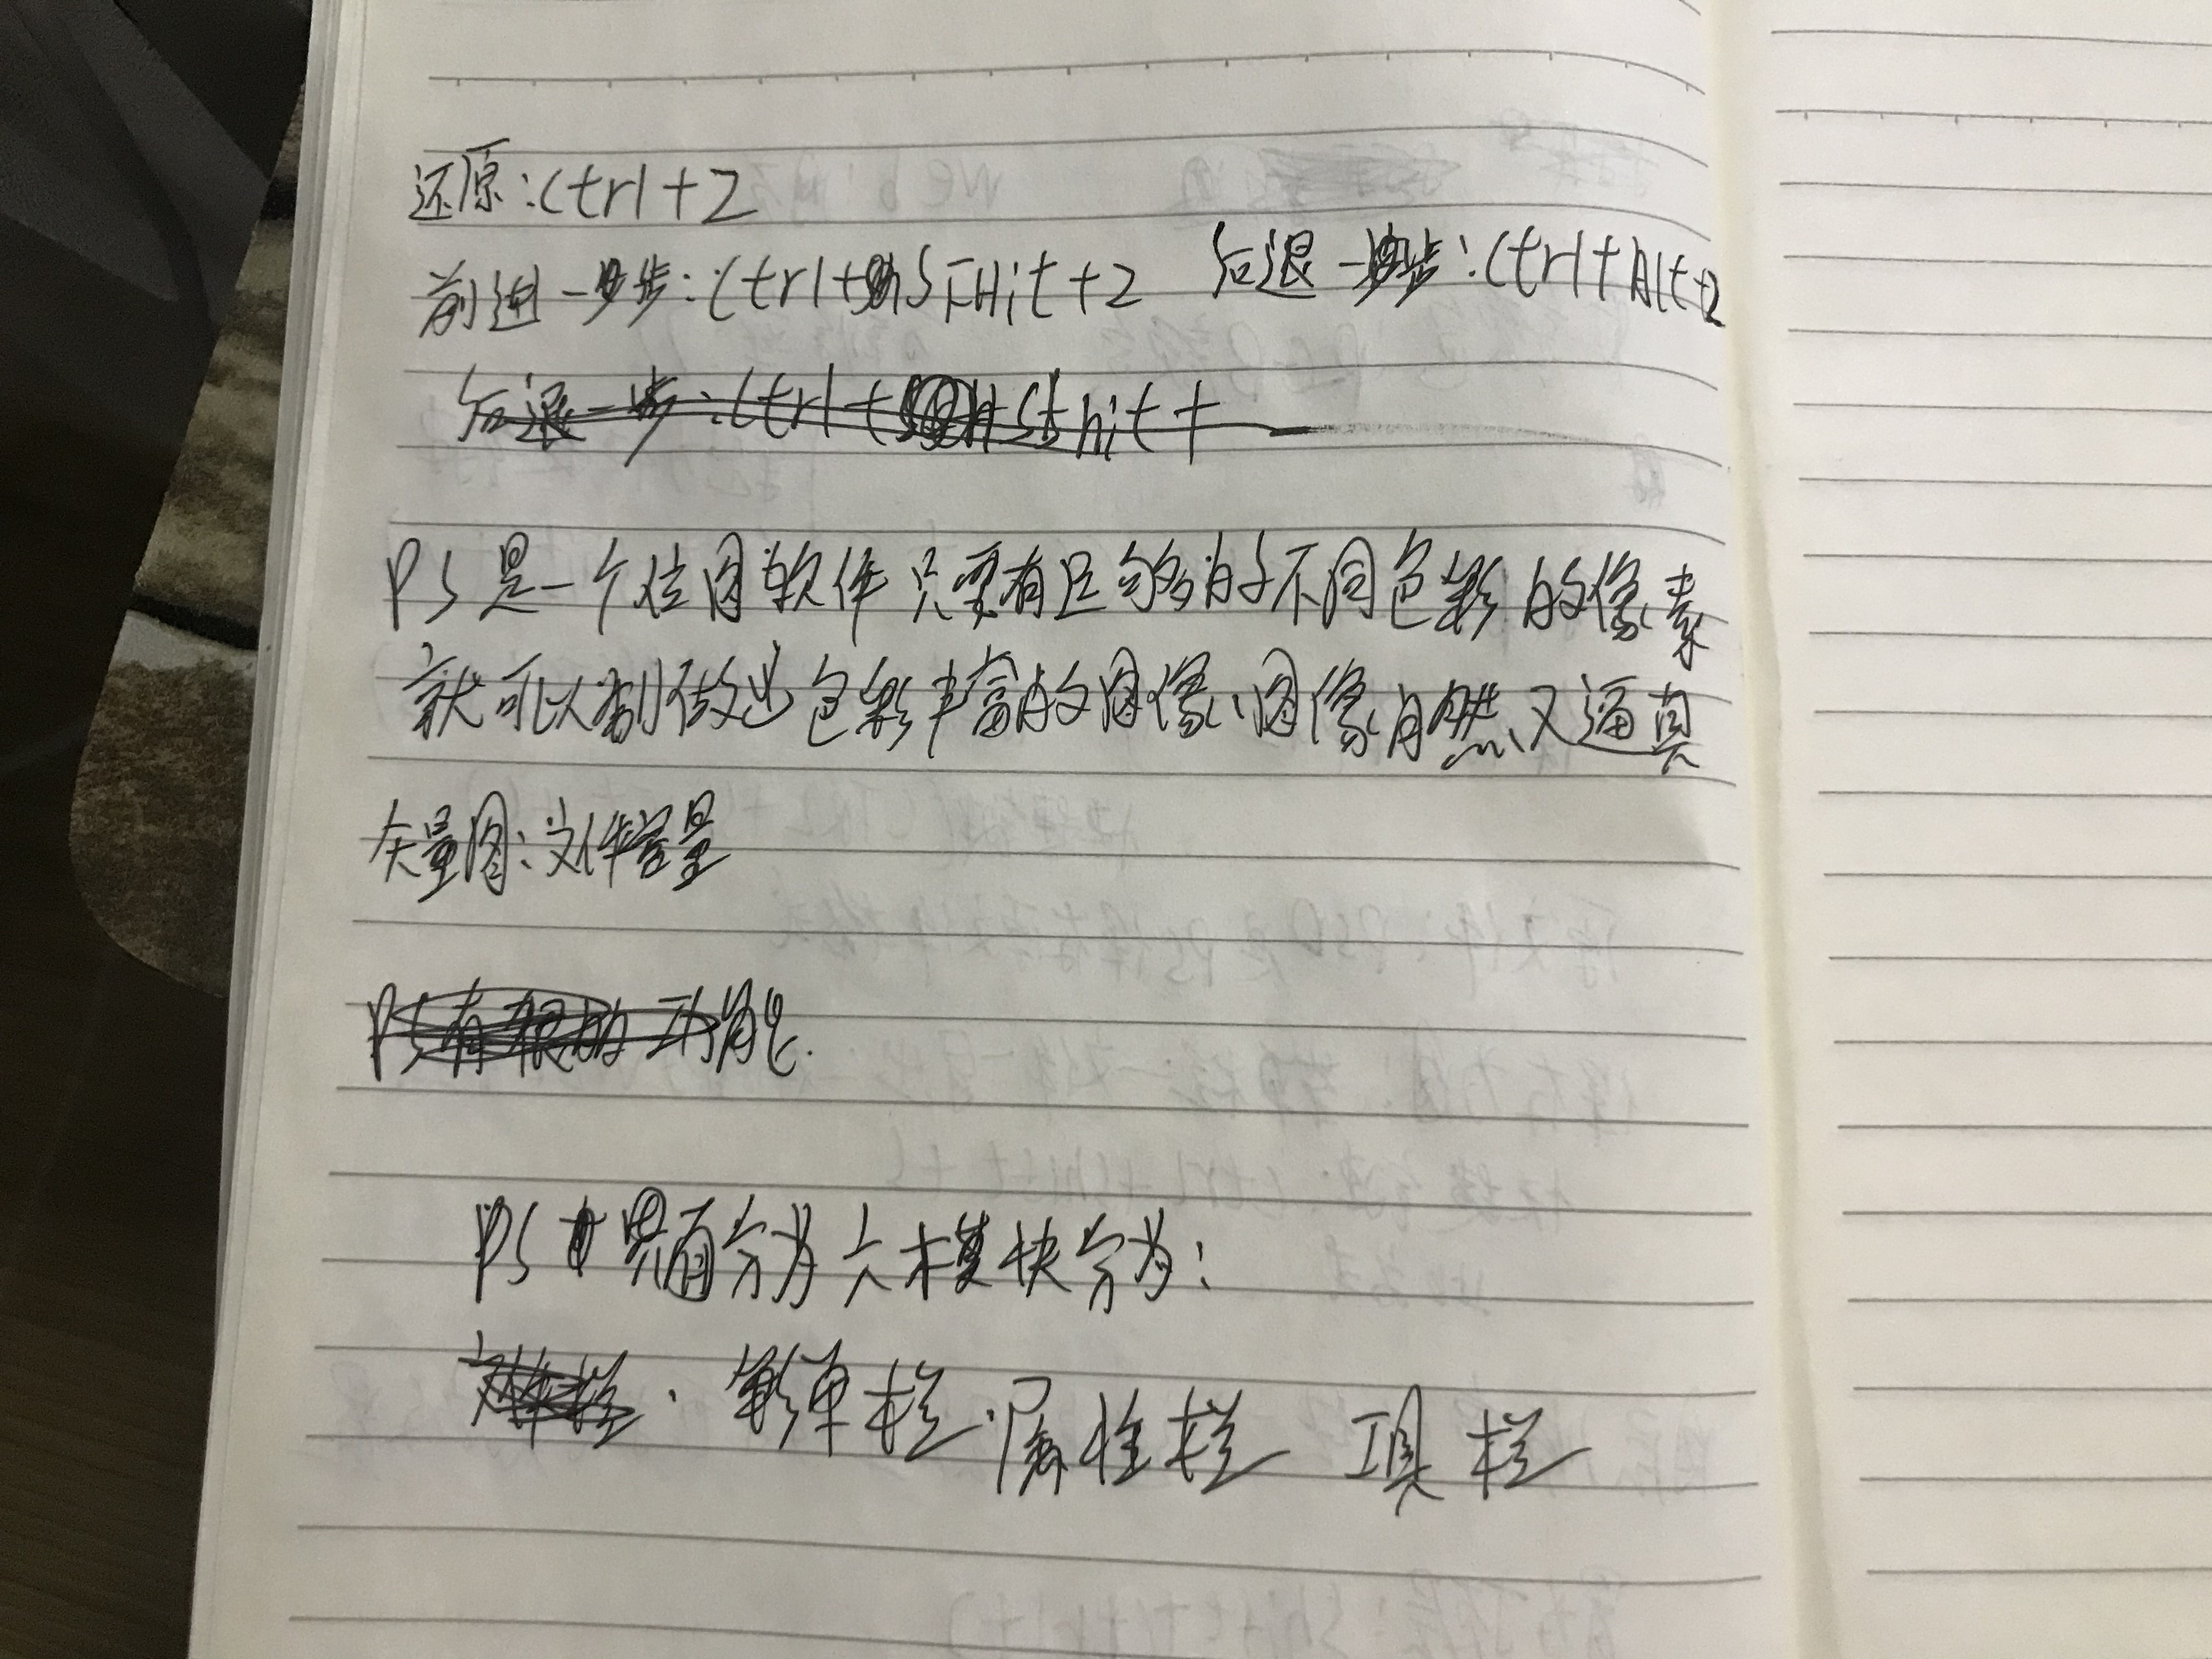 还原:Ctrl+Z
前进一步:Ctrl+SHit+Z 后退一步:Ctrl+Alt+Z
后退一步:Ctrl+Shit+
PS是一个位图软件只要有足够的不同色彩的像素
就可以制做出色彩丰富的图像、图像自然、又逼真
矢量图:文件容量
PS有很的功能.
PS界面分为六模块分为:
菜单栏.属性栏 工具栏